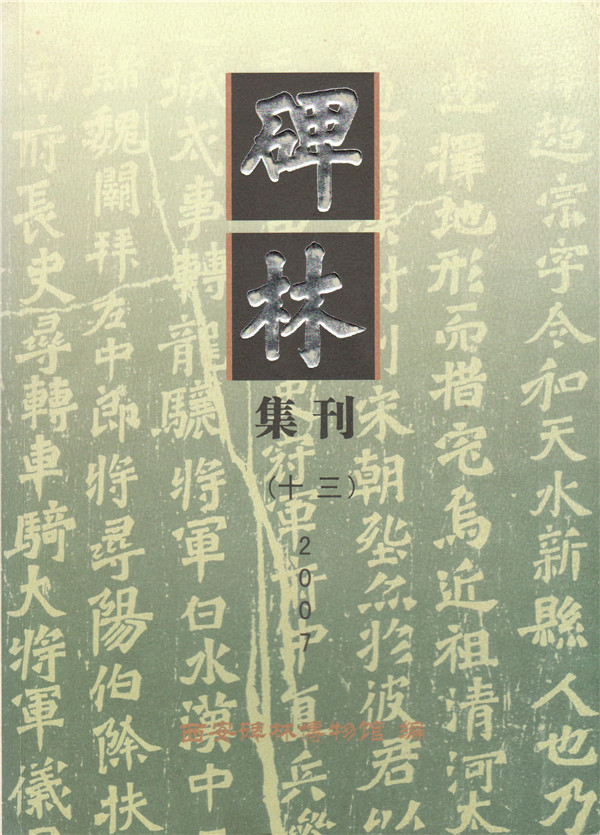 碑林
集刊
(十三)
2007
西安碑林博物馆 编
超宗字令和天水新縣人也乃
擇地形而措宅焉近祖清河太
宋朝 於彼君以
軍 有兵
城太事轉龍驤將軍白水漢中
魏闕拜左中郎將尋陽伯除扶
府長史尋轉車騎大將軍儀